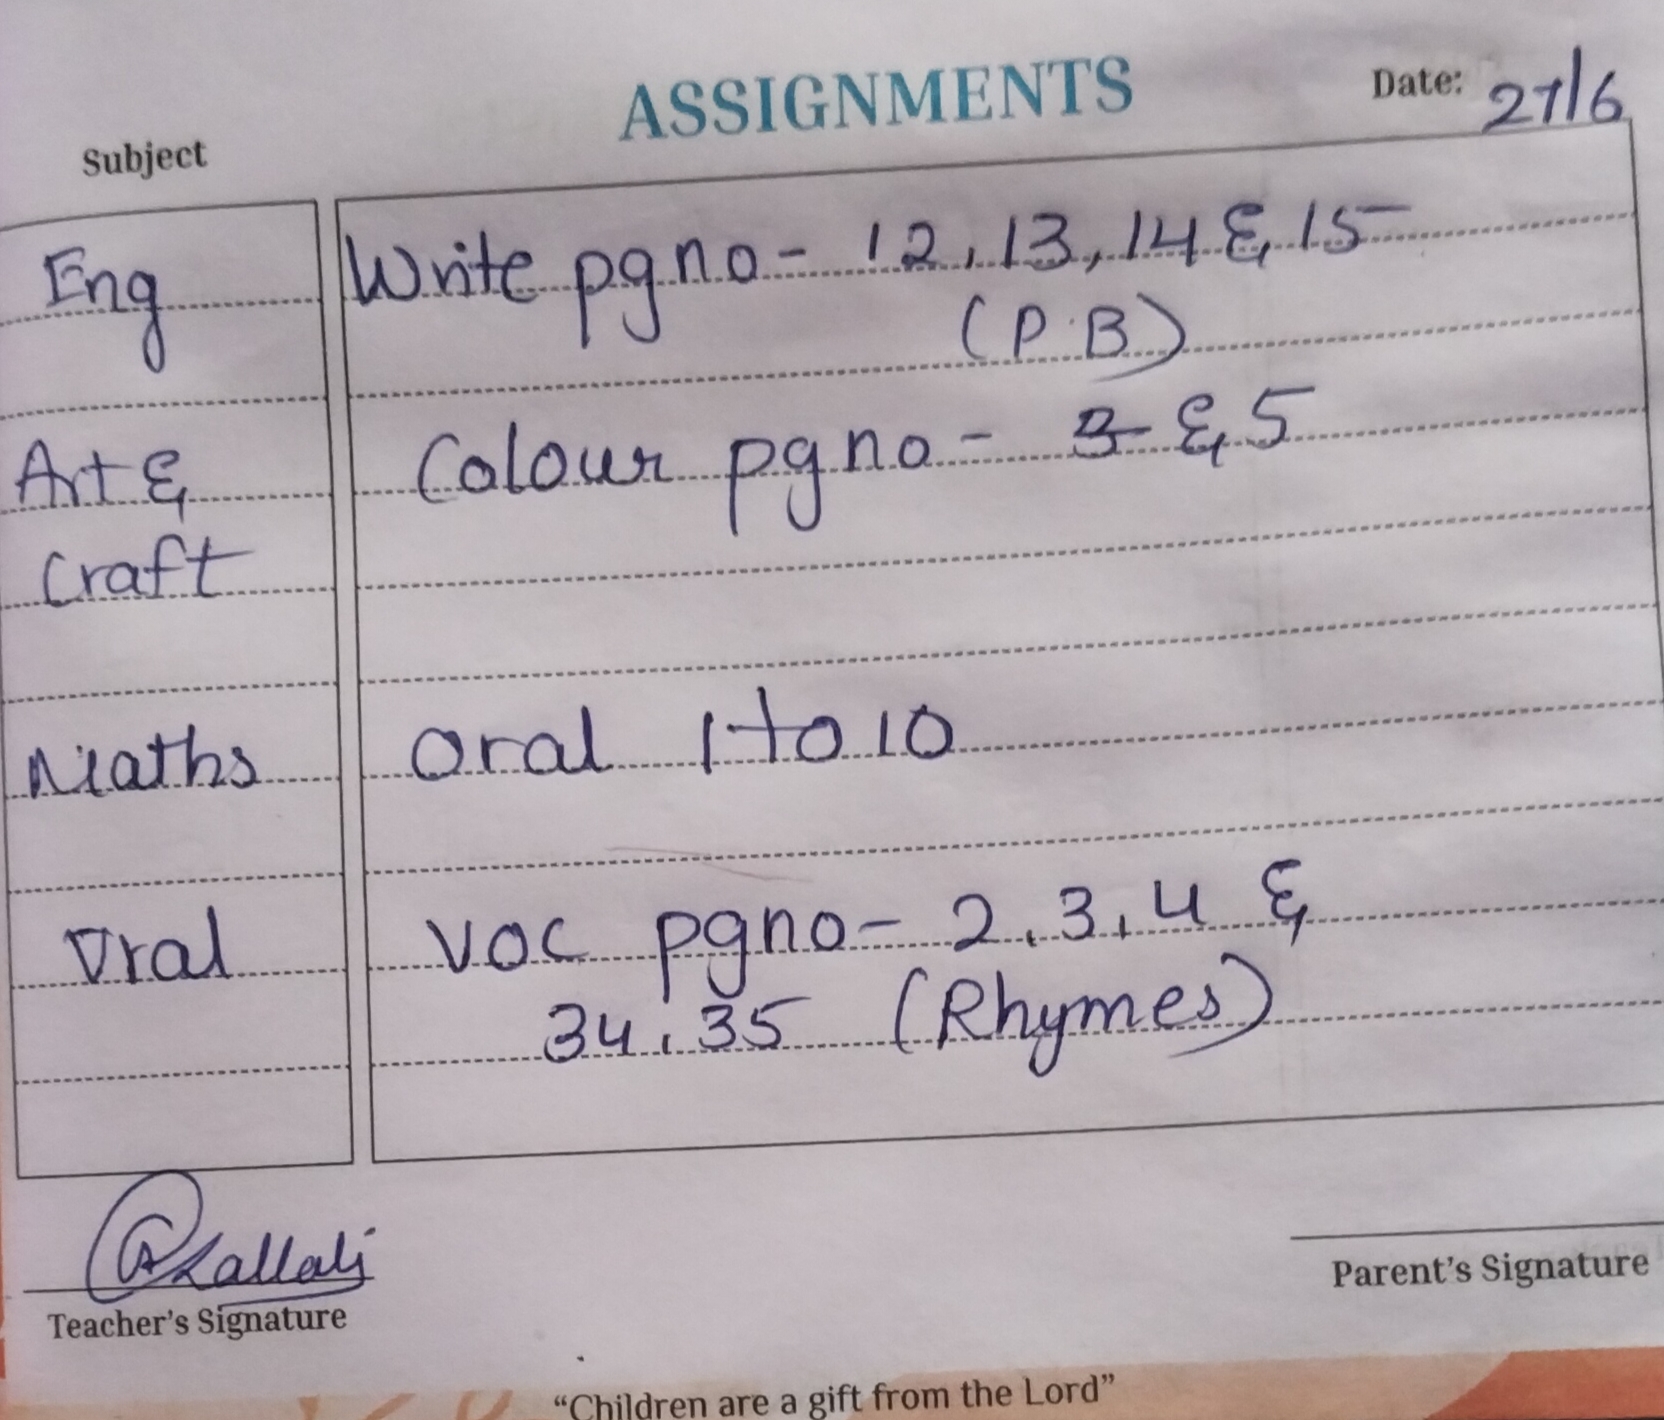 ASSIGNMENTS
Date: 27/6
Subject
Eng Write pg no - 12, 13, 14 & 15
(P.B)
Art & Colour pg no - & 5
Craft
Maths Oral 1 to 10
Oral VOC pg no - 2, 3, 4 &
34, 35 (Rhymes)
Teacher's Signature
Parent's Signature
“Children are a gift from the Lord”